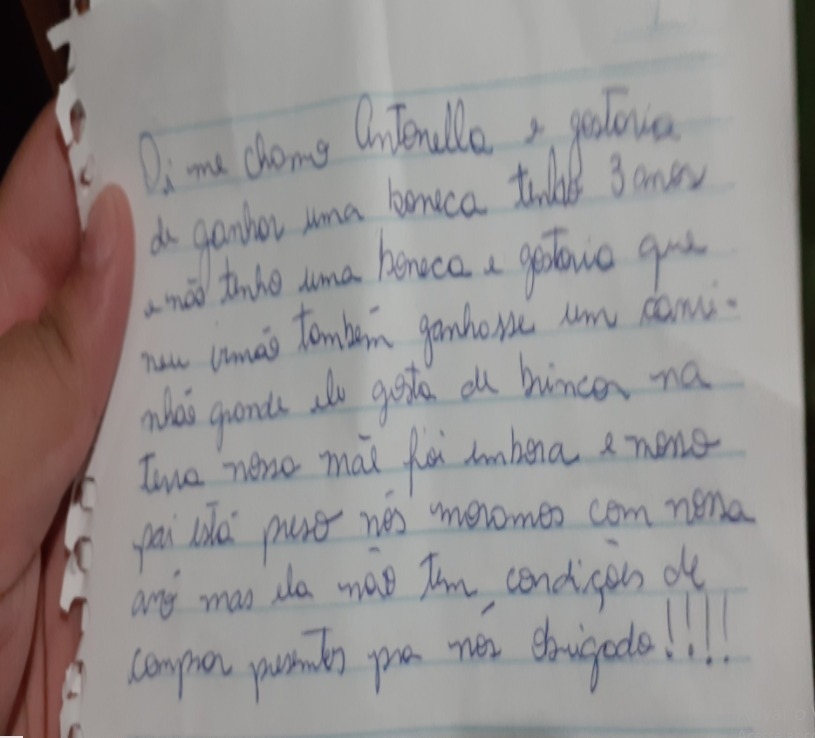 Oi me chamo Antonella e gostaria
de ganhar uma boneca tenho 3 anos
e não tenho uma boneca e gostaria que
meu irmão também ganhosse um cami-
nhão grande ele gosta de brincar na
terra nossa mãe foi embora e nosso
pai está preso nós moramos com nossa
avó mas ela não tem condições de
comprar presentes pra nós obrigado!!!!